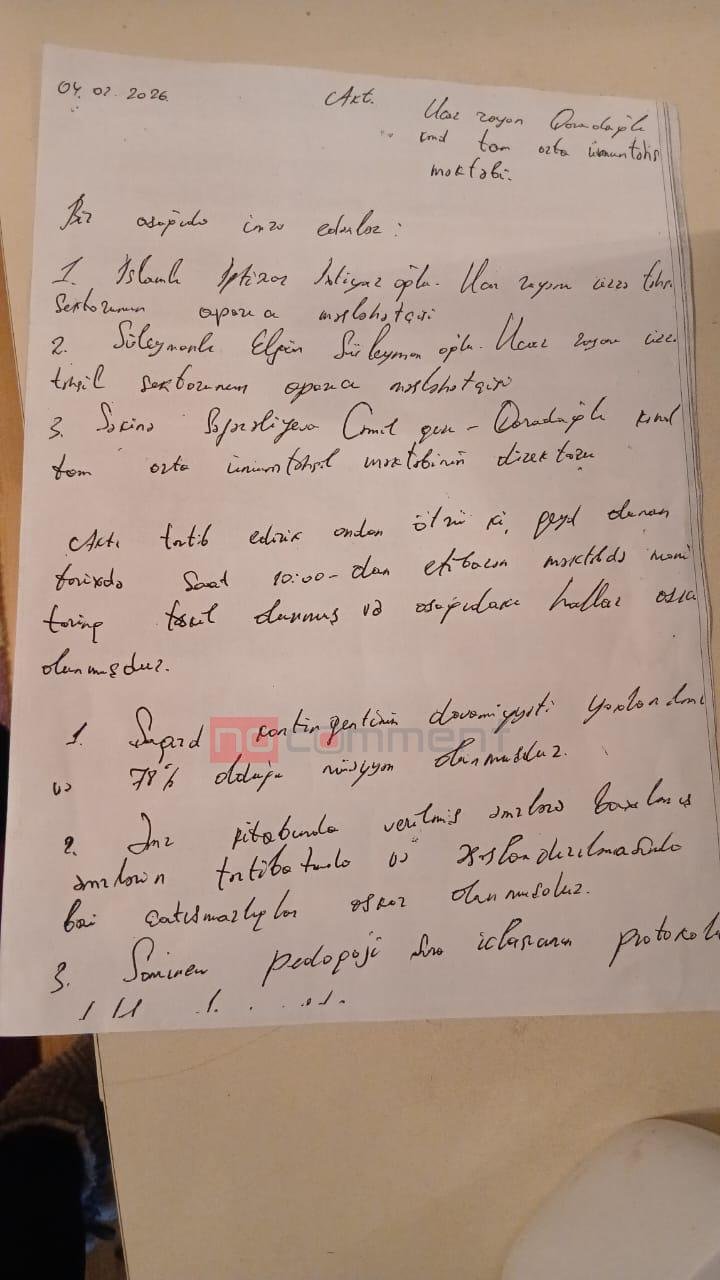 04.02.2026.
Akt.
Ucar rayon Qaradağlı
kənd tam orta ümumtəhsil
məktəbi.
Biz aşağıda imza edənlər:
1. İslamlı İftixar İmtiyaz oğlu. Ucar rayonu üzrə təhsil
Sektorunun aparıcı məsləhətçisi
2. Süleymanlı Elgün Süleyman oğlu. Ucar rayonu üzrə
təhsil sektorunun aparıcı məsləhətçisi
3. Səkinə Cəmil qızı - Qaradağlı kənd
tam orta ümumtəhsil məktəbinin direktoru
Aktı tərtib edirik ondan ötrü ki, qeyd olunan
tarixdə saat 10:00-dan etibarən məktəbdə moni
torinq təşkil olunmuş və aşağıdakı hallar aşkar
olunmuşdur.
1. Şagird kontingentinin davamiyyəti yoxlanılmış
və 78% olduğu müəyyən olunmuşdur.
no comment
2. Əmr kitabında verilmiş əmrlərə baxılmış
əmrlərin tərtibatında və əsaslandırılmasında
bəzi çatışmazlıqlar aşkar olunmuşdur.
3. pedaqoji şura iclasının protokolu